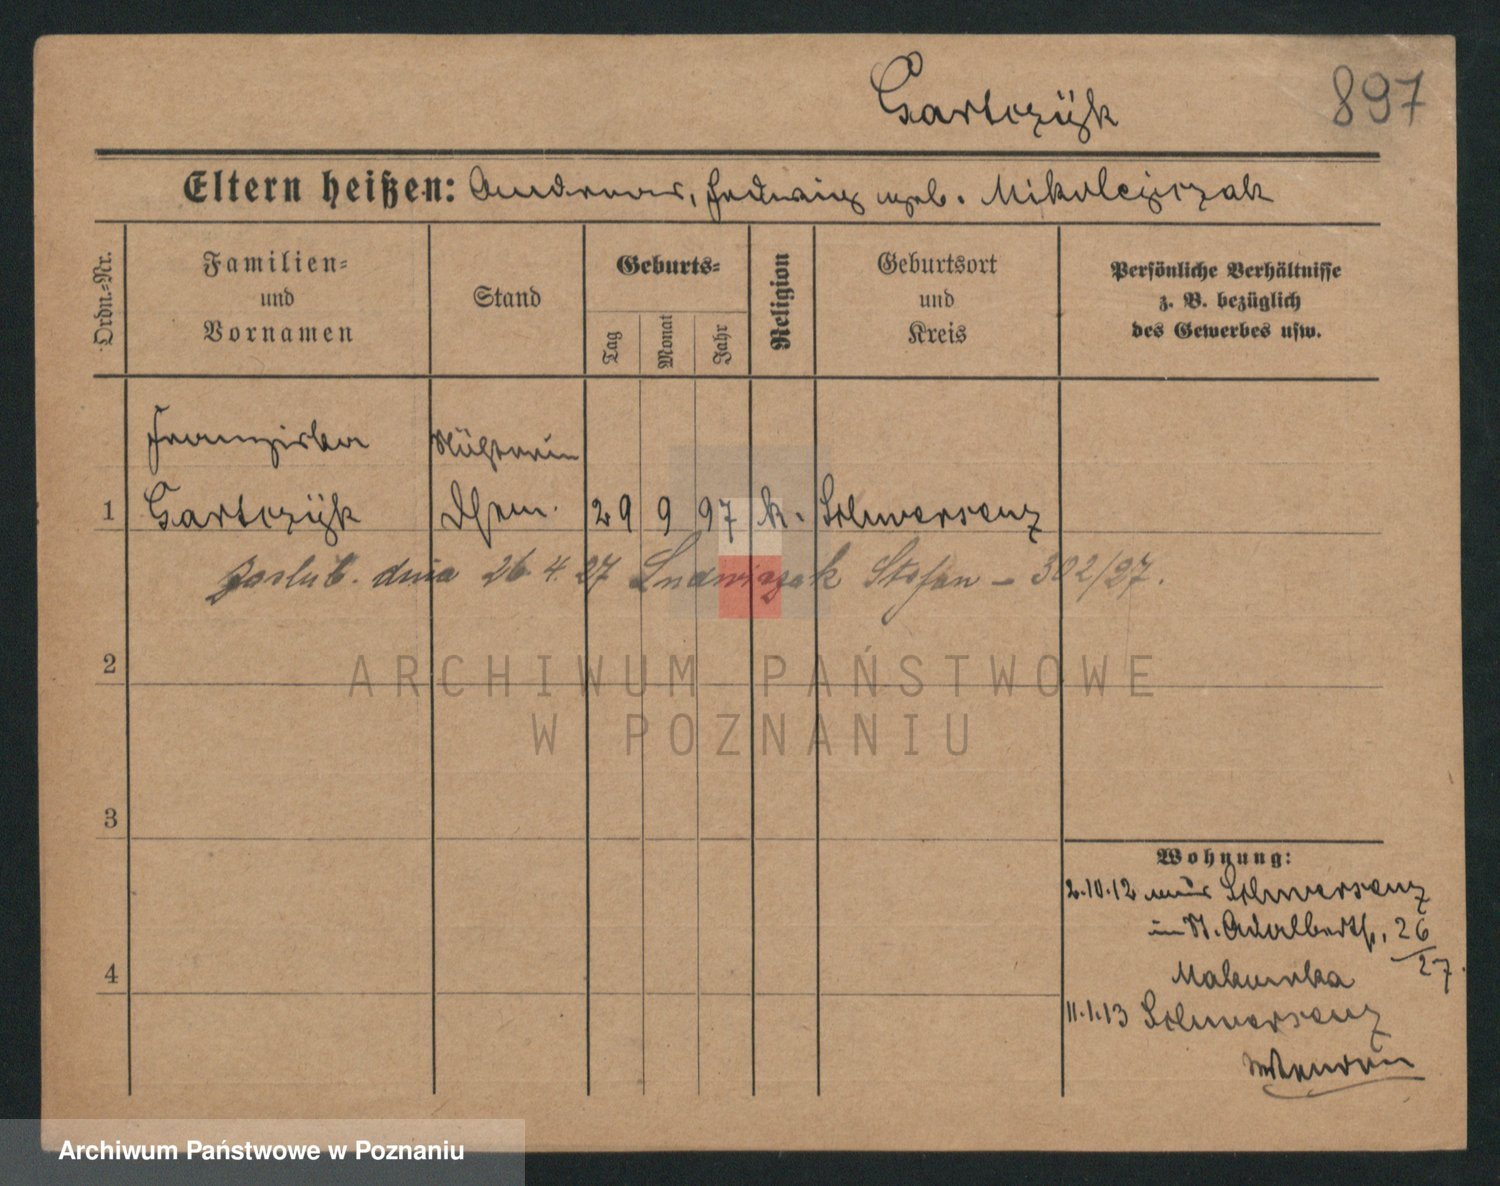 Gartczÿk
897
Eltern heißen: Andreas, Hedwig geb. Mikolejczak
Ordn.-Nr.
Familien-
und
Vornamen
Stand
Geburts-
Tag
Monat
Jahr
Religion
Geburtsort
und
Kreis
Persönliche Verhältnisse
z. B. bezüglich
des Gewerbes usw.
Franziska
Näherin
1 Gartczÿk 29 9 97 k. Schwersenz
zaślub. dnia 26.4.27 Ludwiczak Stefan - 302/27.
2
3
4
Wohnung:
2.10.12 aus Schwersenz
in St. Adalbertstr. 26/27.
11.1.13 Schwersenz
ARCHIWUM PAŃSTWOWE
W POZNANIU
Archiwum Państwowe w Poznaniu